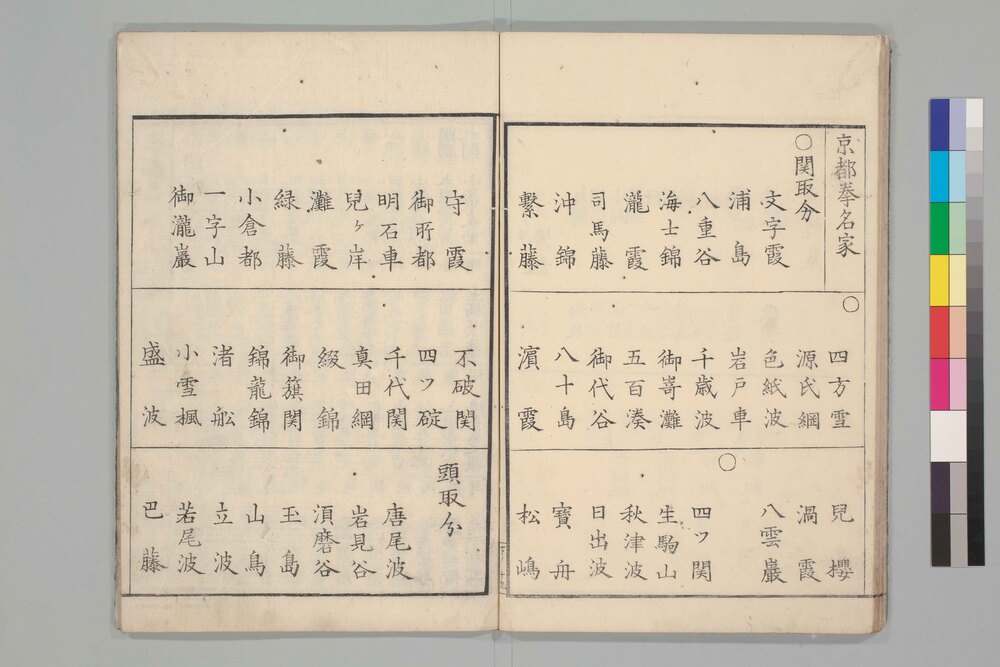 京都拳名家
○関取分
文字霞
浦島
八重谷
海士錦
瀧霞
司馬藤
沖錦
繋藤
○
四方雪
源氏綱
色紙波
岩戸車
千歳波
御嵜灘
五百湊
御代谷
八十島
濱霞
兒櫻
渦霞
八雲巌
○
四ツ関
生駒山
秋津波
日出波
寳舟
松嶋
守霞
御所都
明石車
兒ヶ岸
灘霞
緑藤
小倉都
一字山
御瀧巌
不破関
四ツ碇
千代関
真田綱
綴錦
御籏関
錦龍錦
渚舩
小雪楓
盛波
頭取分
唐尾波
岩見谷
須磨谷
玉島
山鳥
立波
若尾波
巴藤